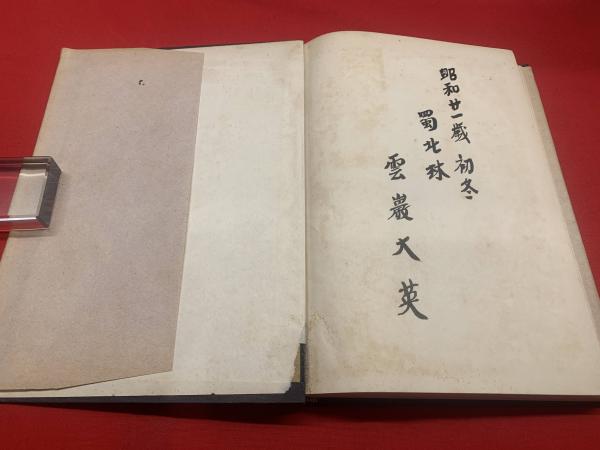 昭和廿一歳初冬
蜀北球
雲巌大英